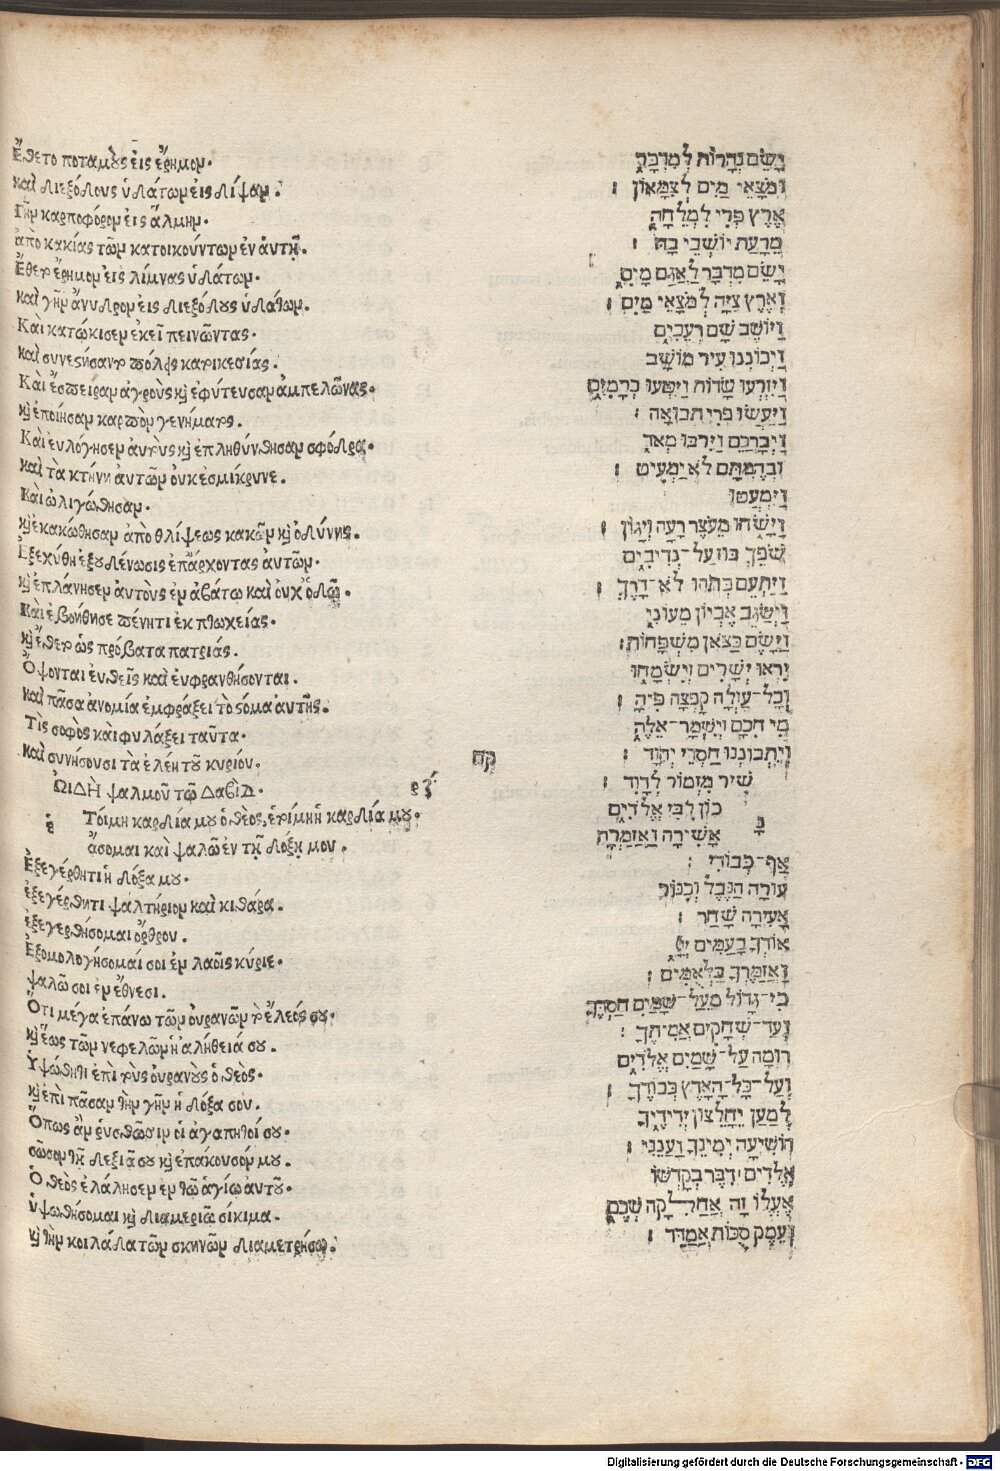 Ἔθετο ποταμοὺς εἰς ἔρημον.
καὶ διεξόδους ὑδάτων εἰς δίψαν.
Γῆν καρποφόρον εἰς ἅλμην.
ἀπὸ κακίας τῶν κατοικούντων ἐν ἀυτῇ.
Ἔθετο ἔρημον εἰς λίμνας ὑδάτων.
καὶ γῆν ἄνυδρον εἰς διεξόδους ὑδάτων.
Καὶ κατώκισεν ἐκεῖ πεινῶντας.
καὶ συνεστήσαντο πόλεις κατοικεσίας.
Καὶ ἔσπειραν ἀγροὺς καὶ ἐφύτευσαν ἀμπελῶνας.
καὶ ἐποίησαν καρπὸν γενήματος.
Καὶ ἐυλόγησεν ἀυτοὺς καὶ ἐπληθύνθησαν σφόδρα.
καὶ τὰ κτήνη ἀυτῶν ὀυκ ἐσμίκρυνε.
Καὶ ὠλιγώθησαν.
καὶ ἐκακώθησαν ἀπὸ θλίψεως κακῶν καὶ ὀδύνης.
Ἐξεχύθη ἐξουδένωσις ἐπ' ἄρχοντας ἀυτῶν.
καὶ ἐπλάνησεν ἀυτοὺς ἐν ἀβάτω καὶ ὀυχ ὁδῶ.
Καὶ ἐβοήθησε πένητι ἐκ πτωχείας.
καὶ ἔθετο ὡς πρόβατα πατριάς.
Ὄψονται ἐυθεῖς καὶ ἐυφρανθήσονται.
καὶ πᾶσα ἀνομία ἐμφράξει τὸ στόμα αυτῆς.
Τίς σοφὸς καὶ φυλάξει ταῦτα.
καὶ συνήσουσι τὰ ἐλέη τοῦ κυρίου.
ὨΙΔῊ ψαλμοῦ τῷ Δαβίδ. ρζ
Ἑτοίμη καρδία μου ὁ θεὸς, ἑτοίμη ἡ καρδία μου.
ἄσομαι καὶ ψαλῶ ἐν τῇ δόξῃ μου.
Ἐξεγέρθητι ἡ δόξα μου.
ἐξεγέρθητι ψαλτήριον καὶ κιθάρα.
ἐξεγερθήσομαι ὄρθρου.
Ἐξομολογήσομαί σοι ἐν λαοῖς κύριε.
ψαλῶ σοι ἐν ἔθνεσι.
Ὅτι μέγα ἐπάνω τῶν ὀυρανῶν τὸ ἔλεός σου.
καὶ ἕως τῶν νεφελῶν ἡ ἀλήθειά σου.
Ὑψώθητι ἐπὶ τοὺς ὀυρανοὺς ὁ θεὸς.
καὶ ἐπὶ πᾶσαν τὴν γῆν ἡ δόξα σου.
Ὅπως ἂν ῥυσθῶσιν οἱ ἀγαπητοί σου.
σῶσον τῇ δεξιᾷ σου καὶ ἐπάκουσόν μου.
Ὁ θεὸς ἐλάλησεν ἐν τῶ ἁγίω ἀυτοῦ.
ὑψωθήσομαι καὶ διαμεριῶ σίκιμα.
καὶ τὴν κοιλάδα τῶν σκηνῶν διαμετρήσω.
יָשֵׂם נְהָרוֹת לְמִדְבָּר
וּמֹצָאֵי מַיִם לְצִמָּאוֹן :
אֶרֶץ פְּרִי לִמְלֵחָה
מֵרָעַת יוֹשְׁבֵי בָהּ :
יָשֵׂם מִדְבָּר לַאֲגַם מָיִם
וְאֶרֶץ צִיָּה לְמֹצָאֵי מָיִם :
וַיּוֹשֶׁב שָׁם רְעֵבִים
וַיְכוֹנְנוּ עִיר מוֹשָׁב
וַיִּזְרְעוּ שָׂדוֹת וַיִּטְּעוּ כְרָמִים
וַיַּעֲשׂוּ פְּרִי תְבוּאָה :
וַיְבָרֲכֵם וַיִּרְבּוּ מְאֹד
וּבְהֶמְתָּם לֹא יַמְעִיט :
וַיִּמְעֲטוּ
וַיָּשֹׁחוּ מֵעֹצֶר רָעָה וְיָגוֹן :
שֹׁפֵךְ בּוּז עַל־נְדִיבִים
וַיַּתְעֵם בְּתֹהוּ לֹא־דָרֶךְ :
וַיְשַׂגֵּב אֶבְיוֹן מֵעוֹנִי
וַיָּשֶׂם כַּצֹּאן מִשְׁפָּחוֹת :
יִרְאוּ יְשָׁרִים וְיִשְׂמָחוּ
וְכָל־עַוְלָה קָפְצָה פִּיהָ :
מִי חָכָם וְיִשְׁמָר־אֵלֶּה
וְיִתְבּוֹנְנוּ חַסְדֵי יְהוָֹד :
קח שִׁיר מִזְמוֹר לְדָוִד :
נָכוֹן לִבִּי אֱלֹדִים
אָשִׁירָה וַאֲזַמְּרָה
אַף־כְּבוֹדִי :
עוּרָה הַנֵּבֶל וְכִנּוֹר
אָעִירָה שָּׁחַר :
אוֹדְךָ בָעַמִּים יְיָ
וַאֲזַמֶּרְךָ בַּלְאֻמִּים :
כִּי־גָדוֹל מֵעַל־שָׁמַיִם חַסְדֶּךָ
וְעַד־שְׁחָקִים אֲמִתֶּךָ :
רוּמָה עַל־שָׁמַיִם אֱלֹדִים
וְעַל־כָּל־הָאָרֶץ כְּבוֹדֶךָ :
לְמַעַן יֵחָלְצוּן יְדִידֶיךָ
הוֹשִׁיעָה יְמִינְךָ וַעֲנֵנִי :
אֱלֹדִים דִּבֶּר בְּקָדְשׁוֹ
אֶעְלֹזָה אֲחַלְּקָה שְׁכֶם
וְעֵמֶק סֻכּוֹת אֲמַדֵּד :
Digitalisierung gefördert durch die Deutsche Forschungsgemeinschaft - DFG